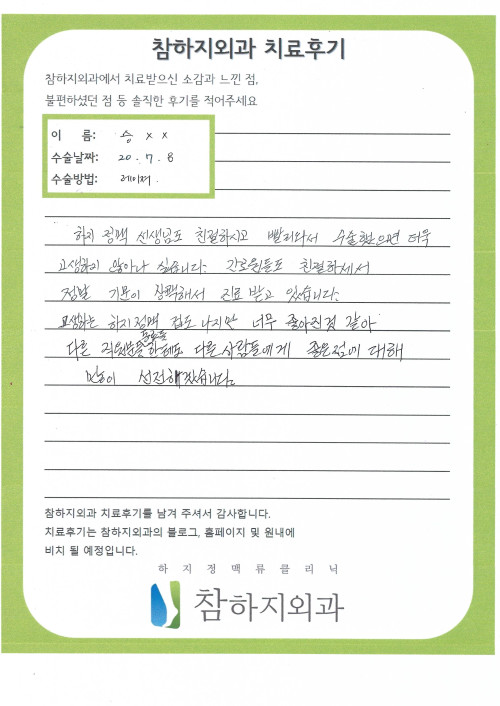 참하지외과 치료후기
참하지외과에서 치료받으신 소감과 느낀 점,
불편하셨던 점 등 솔직한 후기를 적어주세요
이 름: 승 x x
수술날짜: 20. 7. 8
수술방법: 레이저.
하지 정맥 선생님도 친절하시고 빨리와서 수술했으면 더욱
고생하지 않아나 싶습니다. 간호원들도 친절하셔서
정말 기분이 상쾌해서 진료 받고 있습니다.
고생하는 하지정맥 겁도 나지만 너무 좋아진것 같아
다른 직원분들한테도 다른 사람들에게 좋은점에 대해
많이 선전하겠습니다.
참하지외과 치료후기를 남겨 주셔서 감사합니다.
치료후기는 참하지외과의 블로그, 홈페이지 및 원내에
비치 될 예정입니다.
하 지 정 맥 류 클 리 닉
참하지외과